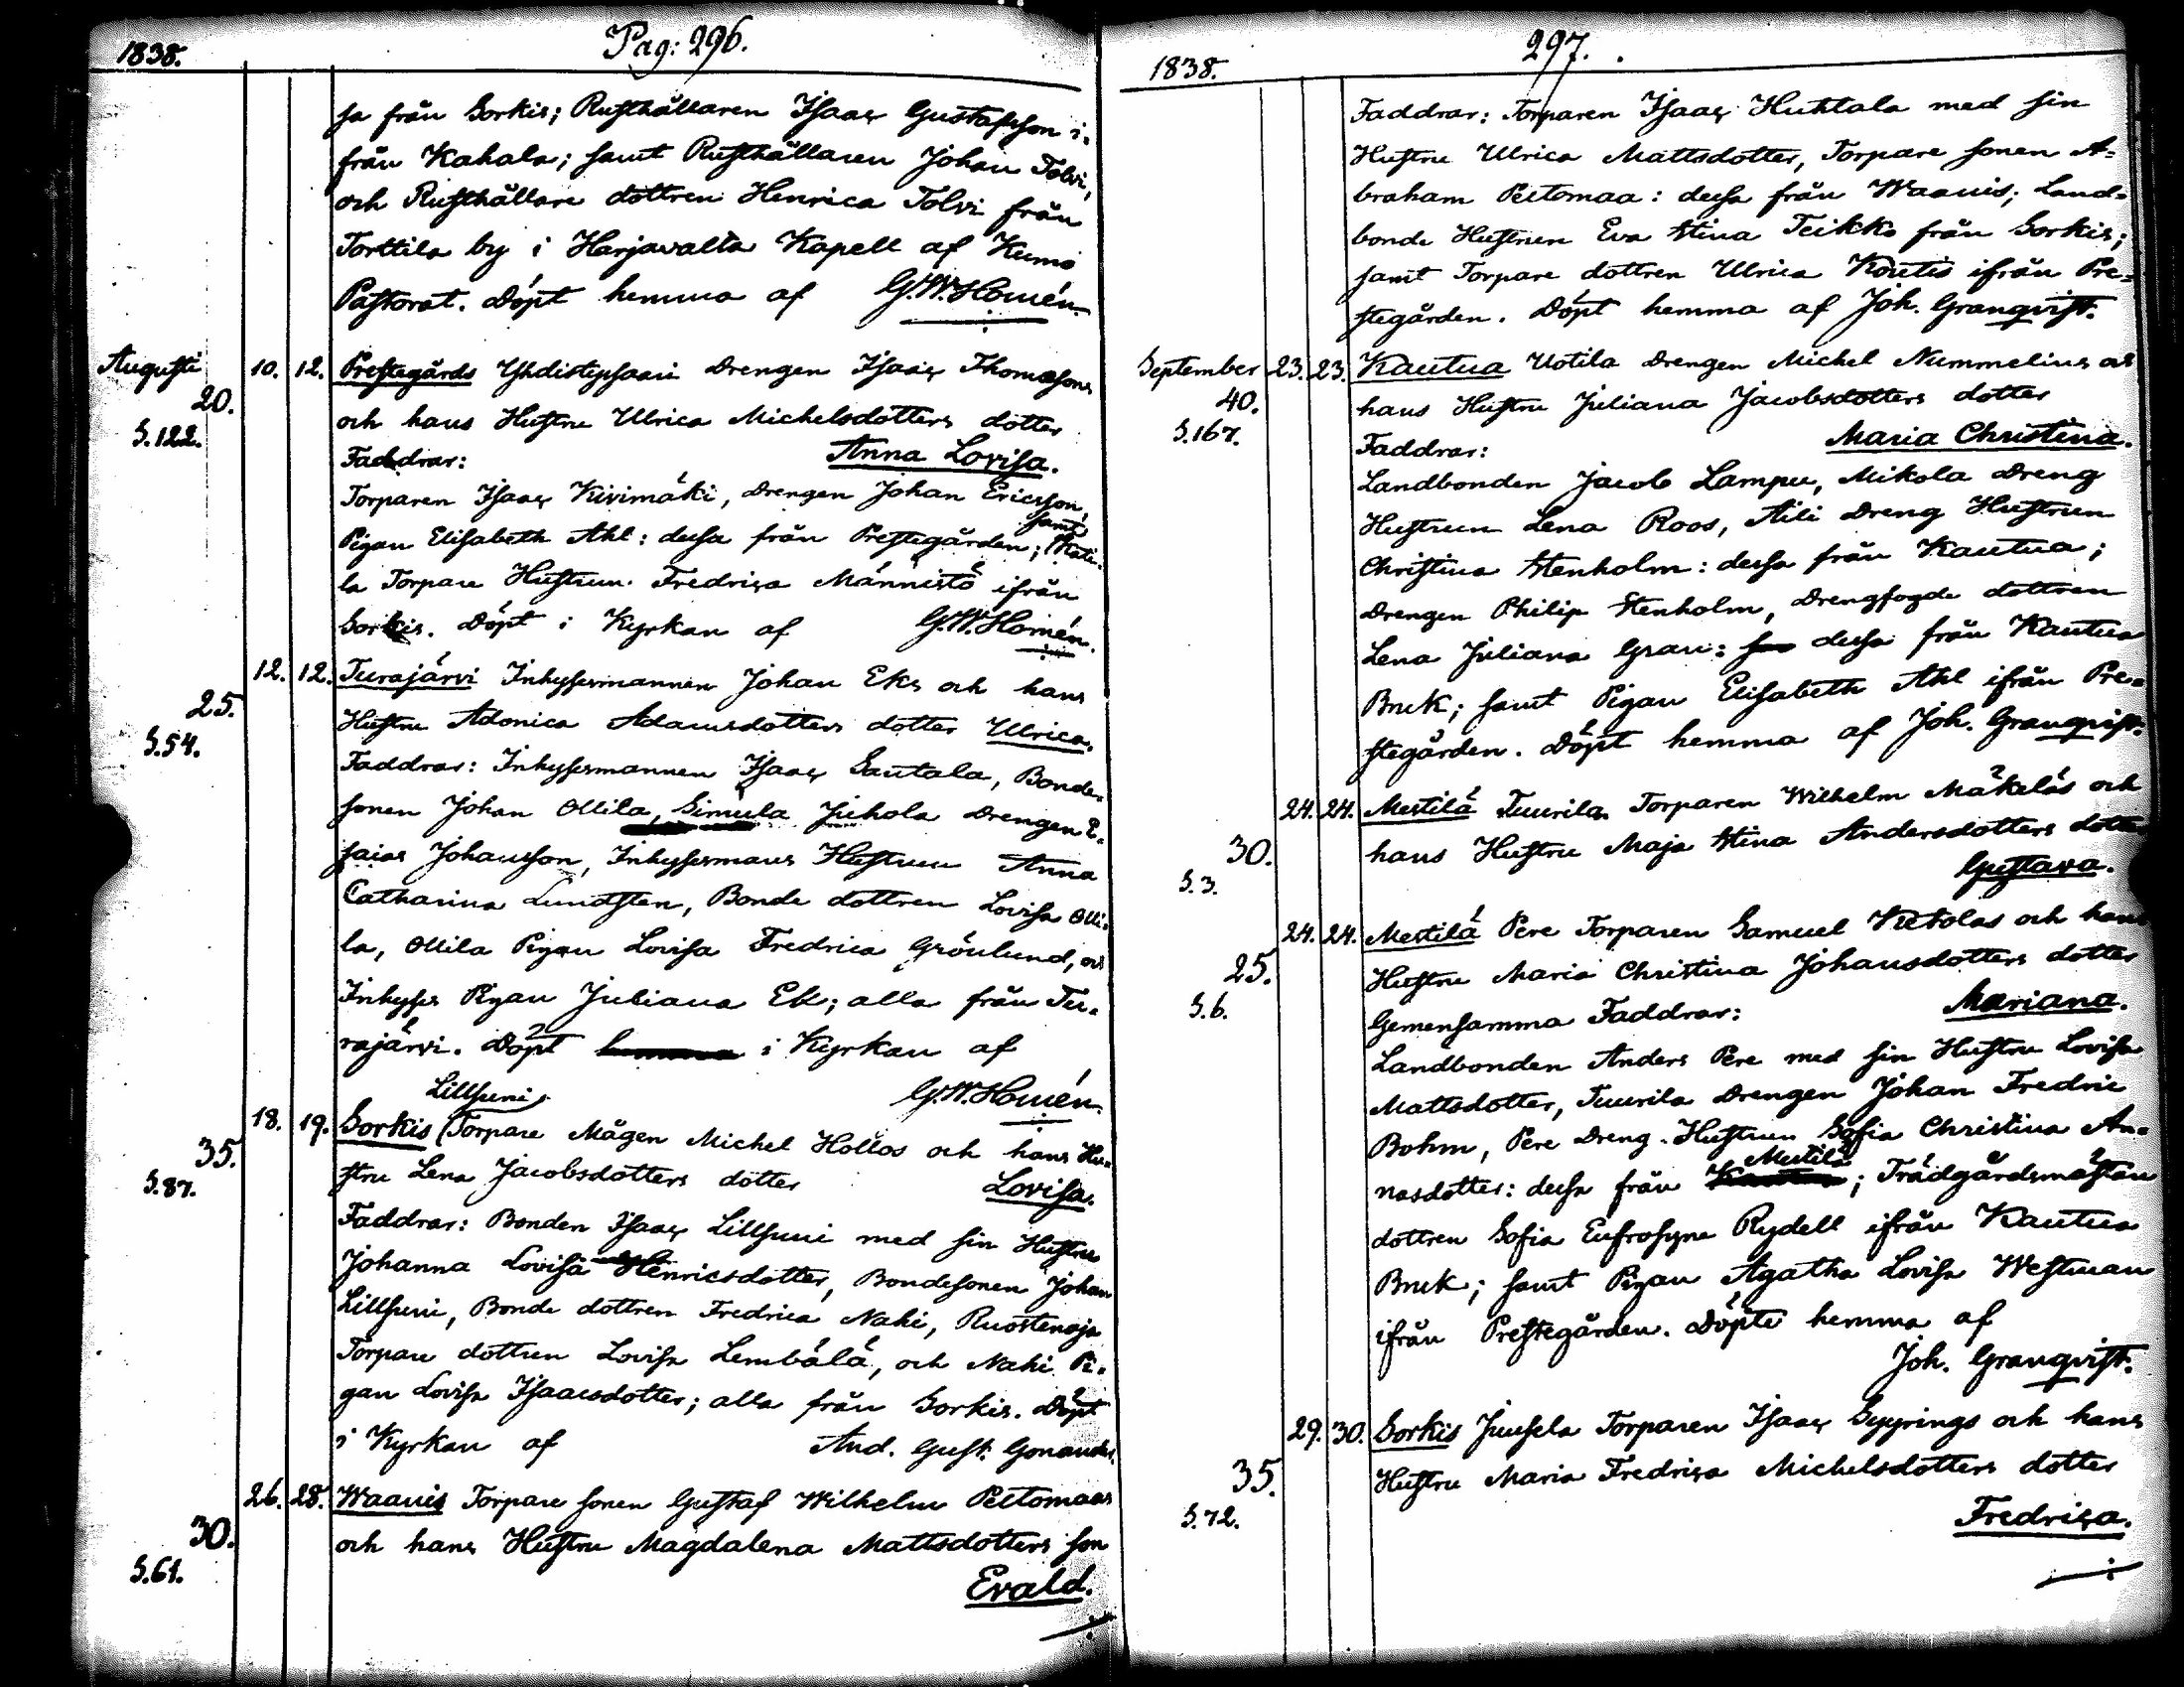 1838. Pag: 296.
sa från Sorkis; Rusthållaren Isaac Gustafsson i-
från Kahala; samt Rusthållaren Johan Tolvi,
och Rusthållare dottren Henrica Tolvi från
Torttila by i Harjavalta Kapell af Kumo
Pastorat. Döpt hemma af G.W.Homén.
Augusti 20. S.122. 10. 12. Prestegårds Yhdistepsaari Drengen Isaac Thomassons
och hans Hustru Ulrica Michelsdotters dotter
Faddrar: Anna Lovisa.
Torparen Isaac Kivimäki, Drengen Johan Ericsson,
Pigan Elisabeth Ahl: dessa från Prestegården; samt Mati-
la Torpare Hustrun Fredrica Männistö ifrån
Sorkis. Döpt i Kyrkan af G.W.Homén.
25. S.54. 12. 12. Turajärvi Inhysesmannen Johan Eks och hans
Hustru Adonica Adamsdotters dotter Ulrica.
Faddrar: Inhysesmannen Isaac Santala, Bonde-
sonen Johan Ollila, Simula Juhola Drengen E-
saias Johansson, Inhysesmans Hustrun Anna
Catharina Lundsten, Bonde dottren Lovisa Olli-
la, Ollila Pigan Lovisa Fredrica Grönlund, och
Inhyses Pigan Juliana Ek; alla från Tu-
rajärvi. Döpt i Kyrkan af
G.W.Homén.
35. S.87. 18. 19. Sorkis Lillsuni Torpare Mågen Michel Hollos och hans Hu-
stru Lena Jacobsdotters dotter Lovisa.
Faddrar: Bonden Isaac Lillsuni med sin Hustru
Johanna Lovisa Henricsdotter, Bondesonen Johan
Lillsuni, Bonde dottren Fredrica Nahi, Ruostenoja
Torpare dottren Lovisa Lembälä, och Nahi Pi-
gan Lovisa Isaacsdotter; alla från Sorkis. Döpt
i Kyrkan af And. Gust. Gonander.
30. S.61. 26. 28. Waanis Torpare sonen Gustaf Wilhelm Peltomaas
och hans Hustru Magdalena Mattsdotters son
Evald.
1838. 297.
Faddrar: Torparen Isaac Huhtala med sin
Hustru Ulrica Mattsdotter, Torpare sonen A-
braham Peltomaa: dessa från Waanis; Land-
bonde Hustrun Eva Stina Teikko från Sorkis;
samt Torpare dottren Ulrica Koutis ifrån Pre-
stegården. Döpt hemma af Joh. Granqvist.
September 40. S.167. 23. 23. Kautua Uotila Drengen Michel Nummelins och
hans Hustru Juliana Jacobsdotters dotter
Faddrar: Maria Christina.
Landbonden Jacob Lampu, Mikola Dreng
Hustrun Lena Roos, Aili Dreng Hustrun
Christina Stenholm: dessa från Kautua;
Drengen Philip Stenholm, Drengfogde dottren
Lena Juliana Gran: dessa från Kautua
Bruk; samt Pigan Elisabeth Ahl ifrån Pre-
stegården. Döpt hemma af Joh. Granqvist.
30. S.3. 24. 24. Mestilä Tuurila Torparen Wilhelm Mäkeläs och
hans Hustru Maja Stina Andersdotters dotter
Gustava.
25. S.6. 24. 24. Mestilä Pere Torparen Samuel Ketolas och hans
Hustru Maria Christina Johansdotters dotter
Gemensamma Faddrar: Mariana.
Landbonden Anders Pere med sin Hustru Lovisa
Mattsdotter, Tuurila Drengen Johan Fredric
Bohm, Pere Dreng Hustrun Sofia Christina An-
nasdotter: dessa från Mestilä; Trädgårdsmästare
dottren Sofia Eufrosyne Rydell ifrån Kautua
Bruk; samt Pigan Agatha Lovisa Westman
ifrån Prestegården. Döpte hemma af
Joh. Granqvist.
35. S.72. 29. 30. Sorkis Juusela Torparen Isaac Syyrings och hans
Hustru Maria Fredrica Michelsdotters dotter
Fredrica.